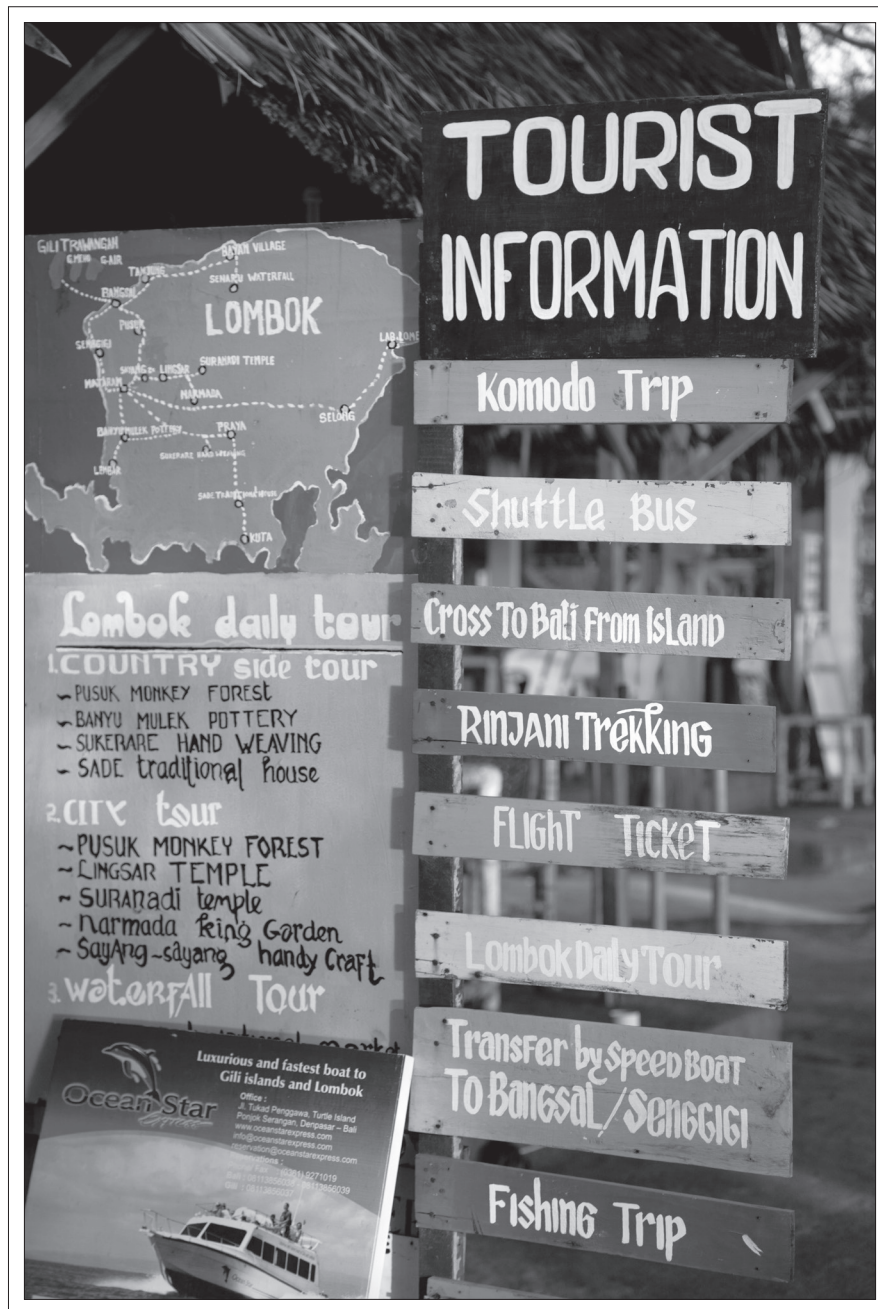 TOURIST
INFORMATION
Komodo Trip
Shuttle Bus
Cross To Bali From Island
RINJANI Trekking
FLIGHT TICKET
Lombok Daily Tour
Transfer by Speed Boat
To Bangsal/Senggigi
Fishing Trip
GILI TRAWANGAN
G.MENO G.AIR
BAYAN VILLAGE
TANJUNG
SENARU WATERFALL
BANGSAL
LOMBOK
PUSUK
SENGGIGI
LAB.LOMB
SURANADI TEMPLE
LINGSAR
MATARAM
NARMADA
SELONG
BANYUMULEK POTTERY
PRAYA
SUKERARE HAND WEAVING
LEMBAR
SADE TRADITIONAL HOUSE
KUTA
Lombok daily tour
1.COUNTRY side tour
~PUSUK MONKEY FOREST
~BANYU MULEK POTTERY
~SUKERARE HAND WEAVING
~SADE traditional house
2.CITY tour
~PUSUK MONKEY FOREST
~LINGSAR TEMPLE
~SURANADI temple
~Narmada king Garden
~SayAng-sayang handy Craft
3.WaterfAll Tour
Luxurious and fastest boat to
Gili islands and Lombok
Ocean Star
Express
Office :
Jl. Tukad Penggawa, Turtle Island
Ponjok Serangan, Denpasar – Bali
www.oceanstarexpress.com
info@oceanstarexpress.com
reservation@oceanstarexpress.com
Reservations :